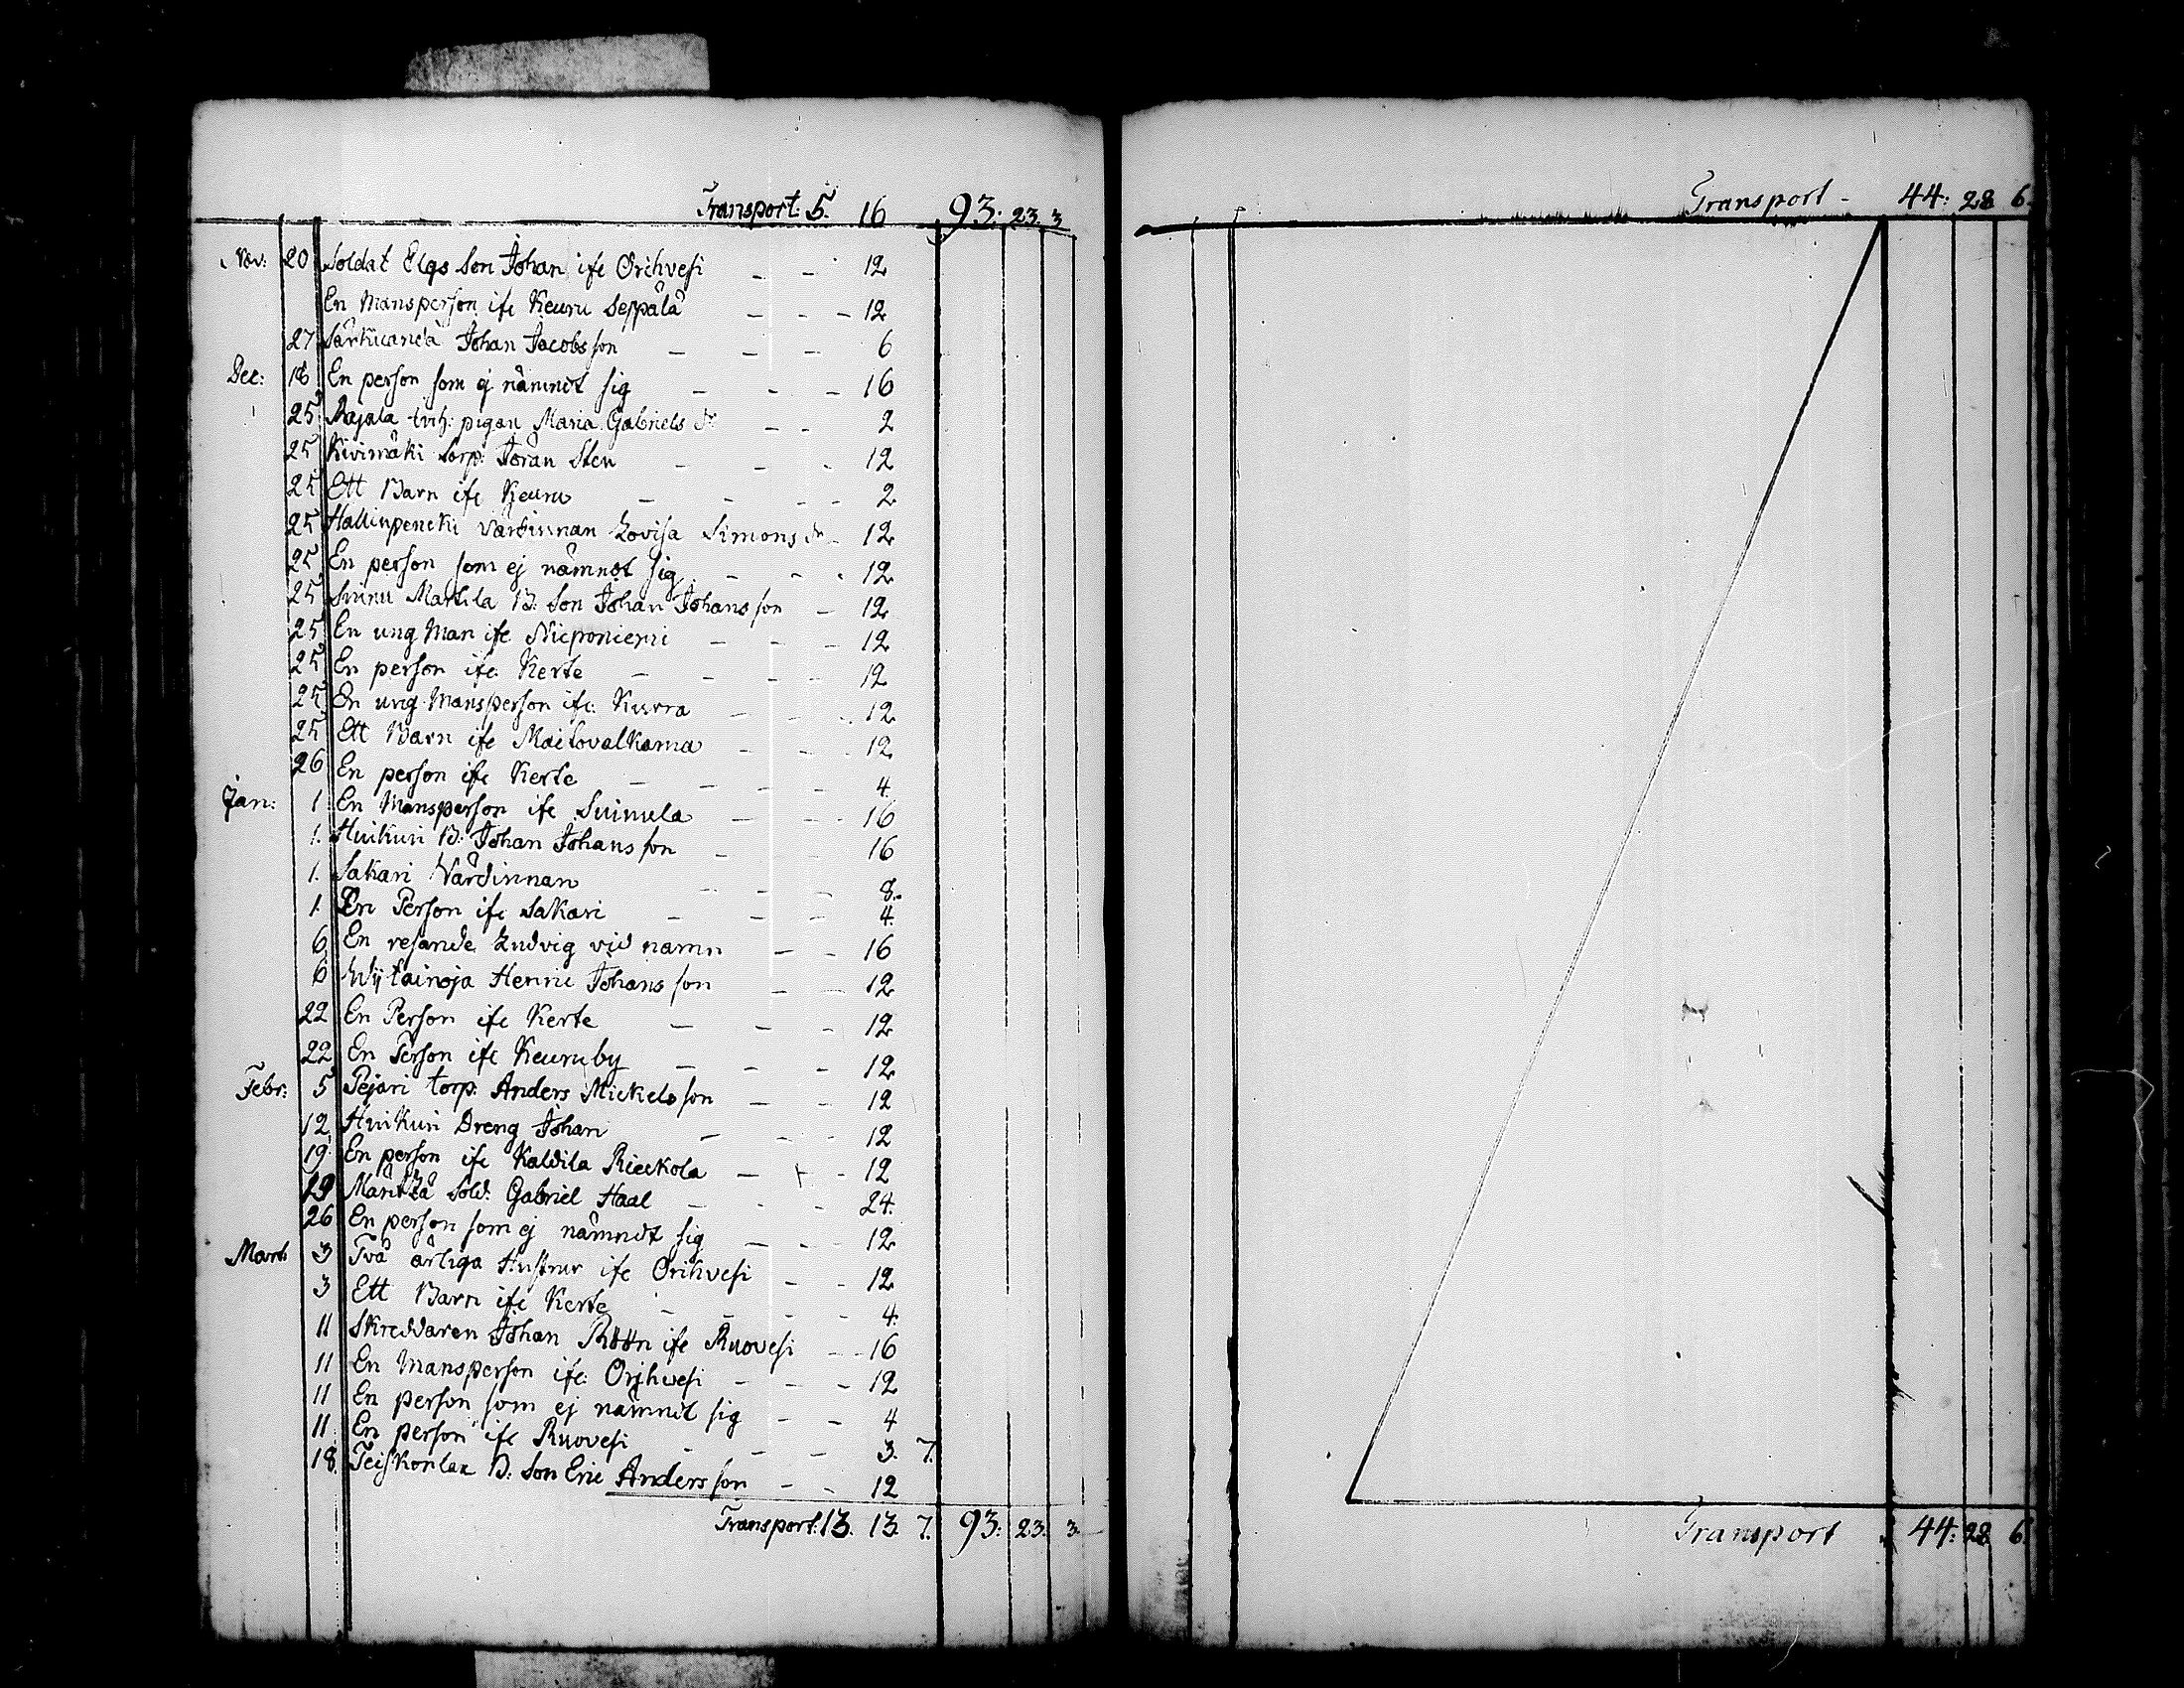 Transport: 5. 16 93: 23. 3
Nov: 20 Soldat Elgs Son Johan ifr Orihvesi - - 12
En Mansperson ifr Keuru Seppälä - - - 12
27 Särkilandä Johan Jacobsson - - - 6
Dec: 18 En person som ej nämndt sig - - - 16
25 Rajala inh: pigan Maria Gabriels dr - - 2
25 Kivimäki torp: Jöran Sten - - - 12
25 Ett Barn ifr Keuru - - - - 2
25 Hallinpencki Värdinnan Lovisa Simons dr - 12
25 En person som ej nämndt sig - - - 12
25 Suinu Martila B: Son Johan Johansson - 12
25 En ung Man ifr Nieponiemi - - - 12
25 En person ifr Kerte - - - - 12
25 En ung Mansperson ifr: Kurra - - - 12
25 Ett Barn ifr Maitovalkama - - - 12
26 En person ifr Kerte - - - - 4
Jan: 1 En Mansperson ifr Suinula - - - 16
1. Huikuri B: Johan Johansson - - - 16
1. Sakari Värdinnan - - - 8.
1. En Person ifr Sakari - - - 4.
6 En resande Ludvig vid namn - - 16
6 Wytainoja Henric Johansson - - 12
22 En Person ifr Kerte - - - 12
22 En Person ifr Keuruby - - - 12
Febr: 5 Pejari torp: Anders Mickelsson - - 12
12 Huikuri Dreng Johan - - - 12
19 En person ifr Kaldila Rieckola - - - 12
19 Sold: Gabriel Haal - - - 24.
26 En person som ej nämndt sig - - - 12
Mart: 3 Två ärliga Hustrur ifr Orihvesi - - 12
3 Ett Barn ifr Kerte - - - - 4.
11 Skreddaren Johan ifr Ruovesi - - 16
11 En Mansperson ifr: Orihvesi - - - 12
11 En person som ej nämndt sig - - 4
11 En person ifr Ruovesi - - - 3. 7.
18. Teiskonlax B: Son Eric Andersson - - 12
Transport: 13. 13. 7. 93: 23: 3
Transport - 44: 28 6.
Transport 44: 28 6